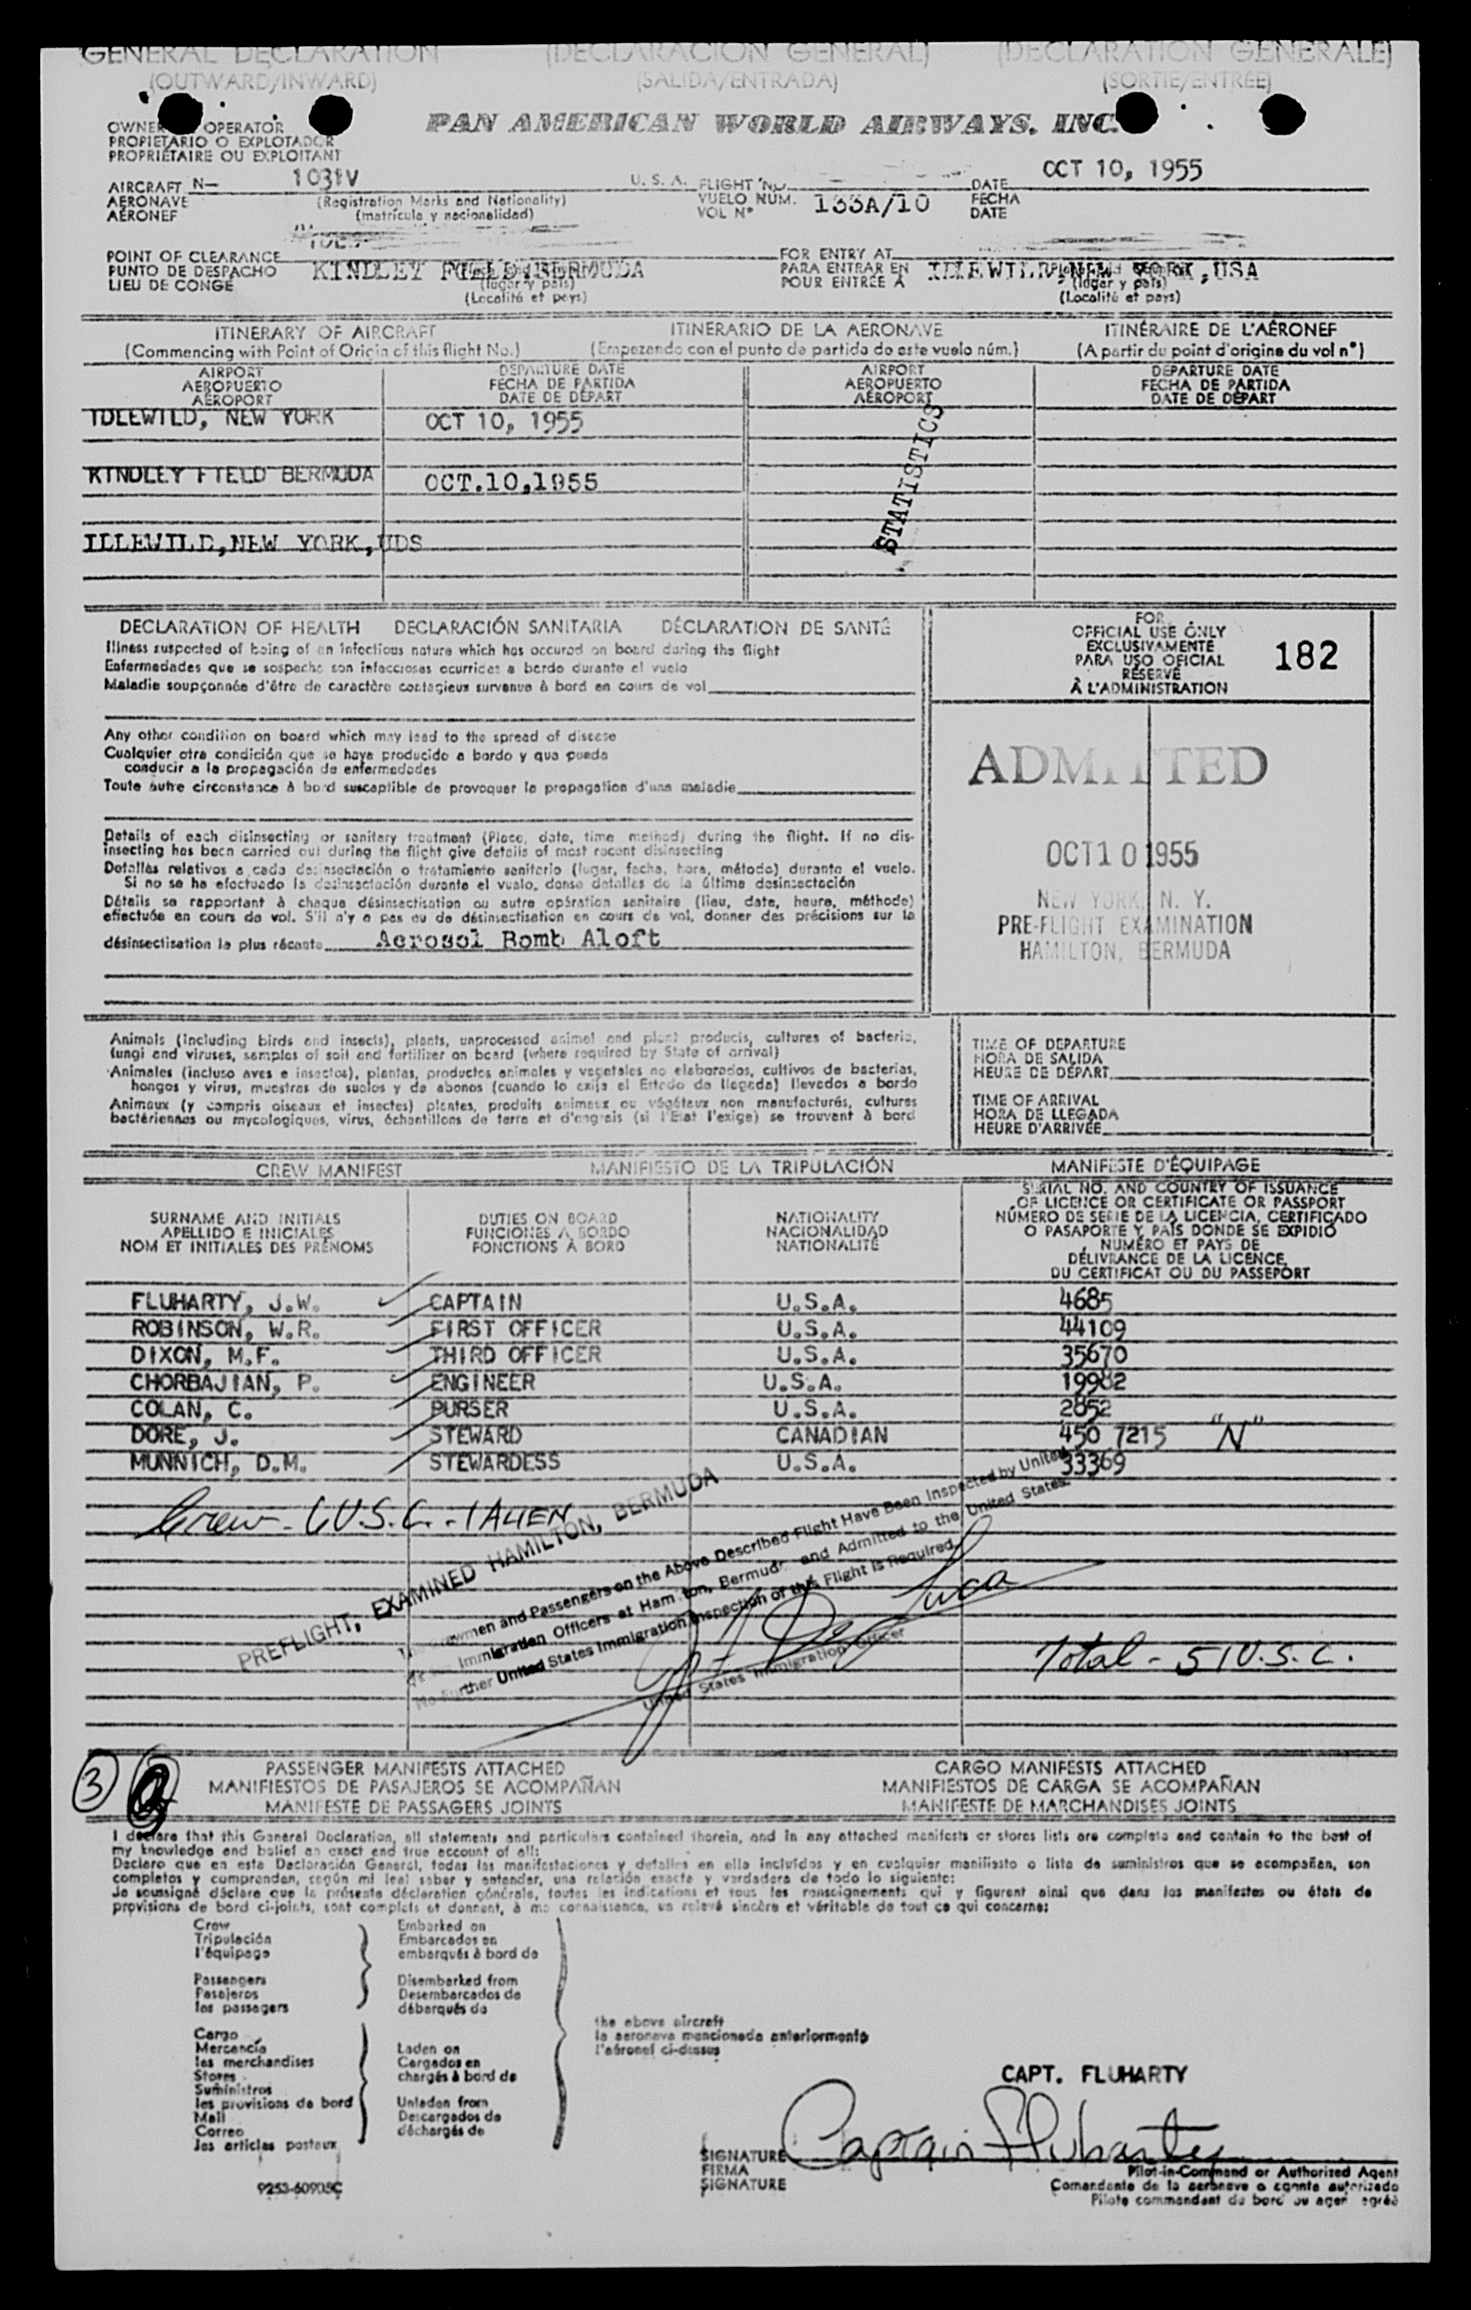 GENERAL DECLARATION (DECLARACION GENERAL) (DECLARATION GENERALE)
(OUTWARD/INWARD) (SALIDA/ENTRADA) (SORTIE/ENTRÉE)
OWNER OPERATOR
PROPIETARIO O EXPLOTADOR
PROPRIÉTAIRE OU EXPLOITANT
PAN AMERICAN WORLD AIRWAYS, INC.
AIRCRAFT N- 1031V U. S. A. FLIGHT NO. DATE OCT 10, 1955
AERONAVE (Registration Marks and Nationality) VUELO NUM. 133A/10 FECHA
AÉRONEF (matrícula y nacionalidad) VOL Nº DATE
POINT OF CLEARANCE FOR ENTRY AT
PUNTO DE DESPACHO KINDLEY FIELD, BERMUDA PARA ENTRAR EN IDLEWILD, NEW YORK, USA
LIEU DE CONGÉ (lugar y país) POUR ENTRÉE À (lugar y país)
(Localité et pays) (Localité et pays)
ITINERARY OF AIRCRAFT ITINERARIO DE LA AERONAVE ITINÉRAIRE DE L'AÉRONEF
(Commencing with Point of Origin of this flight No.) (Empezando con el punto de partida de este vuelo núm.) (A partir du point d'origine du vol nº)
AIRPORT DEPARTURE DATE AIRPORT DEPARTURE DATE
AEROPUERTO FECHA DE PARTIDA AEROPUERTO FECHA DE PARTIDA
AÉROPORT DATE DE DÉPART AÉROPORT DATE DE DÉPART
IDLEWILD, NEW YORK OCT 10, 1955
KINDLEY FIELD BERMUDA OCT.10,1955
STATISTICS
ILLEWILD,NEW YORK,UDS
DECLARATION OF HEALTH DECLARACIÓN SANITARIA DÉCLARATION DE SANTÉ
Illness suspected of being of an infectious nature which has occured on board during the flight
Enfermedades que se sospecha son infecciosas ocurridas a bordo durante el vuelo
Maladie soupçonnée d'être de caractère contagieux survenue à bord en cours de vol
Any other condition on board which may lead to the spread of disease
Cualquier otra condición que se haya producido a bordo y que pueda
conducir a la propagación de enfermedades
Toute autre circonstance à bord susceptible de provoquer la propagation d'une maladie
Details of each disinsecting or sanitary treatment (Place, date, time method) during the flight. If no dis-
insecting has been carried out during the flight give details of most recent disinsecting
Detalles relativos a cada desinsectación o tratamiento sanitario (lugar, fecha, hora, método) durante el vuelo.
Si no se ha efectuado la desinsectación durante el vuelo, dense detalles de la última desinsectación
Détails se rapportant à chaque désinsectisation ou autre opération sanitaire (lieu, date, heure, méthode)
effectuée en cours de vol. S'il n'y a pas eu de désinsectisation en cours de vol, donner des précisions sur la
désinsectisation la plus récente Aerosol Bomb Aloft
FOR
OFFICIAL USE ONLY
EXCLUSIVAMENTE
PARA USO OFICIAL
RÉSERVÉ
À L'ADMINISTRATION
182
ADMITTED
OCT 10 1955
NEW YORK, N. Y.
PRE-FLIGHT EXAMINATION
HAMILTON, BERMUDA
Animals (including birds and insects), plants, unprocessed animal and plant products, cultures of bacteria,
fungi and viruses, samples of soil and fertilizer on board (where required by State of arrival)
Animales (incluso aves e insectos), plantas, productos animales y vegetales no elaborados, cultivos de bacterias,
hongos y virus, muestras de suelos y de abonos (cuando lo exija el Estado de llegada) llevados a bordo
Animaux (y compris oiseaux et insectes) plantes, produits animaux ou végétaux non manufacturés, cultures
bactériennes ou mycologiques, virus, échantillons de terre et d'engrais (si l'État l'exige) se trouvant à bord
TIME OF DEPARTURE
HORA DE SALIDA
HEURE DE DÉPART
TIME OF ARRIVAL
HORA DE LLEGADA
HEURE D'ARRIVÉE
CREW MANIFEST MANIFIESTO DE LA TRIPULACIÓN MANIFESTE D'ÉQUIPAGE
SURNAME AND INITIALS
APELLIDO E INICIALES
NOM ET INITIALES DES PRÉNOMS
DUTIES ON BOARD
FUNCIONES A BORDO
FONCTIONS À BORD
NATIONALITY
NACIONALIDAD
NATIONALITÉ
SERIAL NO. AND COUNTRY OF ISSUANCE
OF LICENCE OR CERTIFICATE OR PASSPORT
NÚMERO DE SERIE DE LA LICENCIA, CERTIFICADO
O PASAPORTE Y PAÍS DONDE SE EXPIDIÓ
NUMÉRO ET PAYS DE
DÉLIVRANCE DE LA LICENCE,
DU CERTIFICAT OU DU PASSEPORT
FLUHARTY, J.W. CAPTAIN U.S.A. 4685
ROBINSON, W.R. FIRST OFFICER U.S.A. 44109
DIXON, M.F. THIRD OFFICER U.S.A. 35670
CHORBAJIAN, P. ENGINEER U.S.A. 19982
COLAN, C. PURSER U.S.A. 2852
DORE, J. STEWARD CANADIAN 450 7215 "N"
MUNNICH, D.M. STEWARDESS U.S.A. 33369
Crew - 6 U.S.C. - 1 ALIEN
PREFLIGHT, EXAMINED HAMILTON, BERMUDA
Crewmen and Passengers on the Above Described Flight Have Been Inspected by United
States Immigration Officers at Hamilton, Bermuda and Admitted to the United States.
No Further United States Immigration Inspection of this Flight is Required
United States Immigration Officer
Total - 51 U.S.C.
3
PASSENGER MANIFESTS ATTACHED CARGO MANIFESTS ATTACHED
MANIFIESTOS DE PASAJEROS SE ACOMPAÑAN MANIFIESTOS DE CARGA SE ACOMPAÑAN
MANIFESTE DE PASSAGERS JOINTS MANIFESTE DE MARCHANDISES JOINTS
I declare that this General Declaration, all statements and particulars contained therein, and in any attached manifests or stores lists are complete and contain to the best of
my knowledge and belief an exact and true account of all:
Declaro que en esta Declaración General, todas las manifestaciones y detalles en ella incluídos y en cualquier manifiesto o lista de suministros que se acompañan, son
completos y comprenden, según mi leal saber y entender, una relación exacta y verdadera de todo lo siguiente:
Je soussigné déclare que la présente déclaration générale, toutes les indications et tous les renseignements qui y figurent ainsi que dans les manifestes ou états de
provisions de bord ci-joints, sont complets et donnent, à ma connaissance, un relevé sincère et véritable de tout ce qui concerne:
Crew Embarked on
Tripulación Embarcados en
l'équipage embarqués à bord de
Passengers Disembarked from
Pasajeros Desembarcados de
les passagers débarqués de
the above aircraft
la aeronave mencionada anteriormente
l'aéronef ci-dessus
Cargo
Mercancía Laden on
les merchandises Cargados en
Stores chargés à bord de
Suministros
les provisions de bord Unladen from
Mail Descargados de
Correo déchargés de
les articles postaux
CAPT. FLUHARTY
SIGNATURE Captain Fluharty
FIRMA Pilot-in-Command or Authorized Agent
SIGNATURE Comandante de la aeronave o agente autorizado
Pilote commandant de bord ou agent agréé
9253-60905C